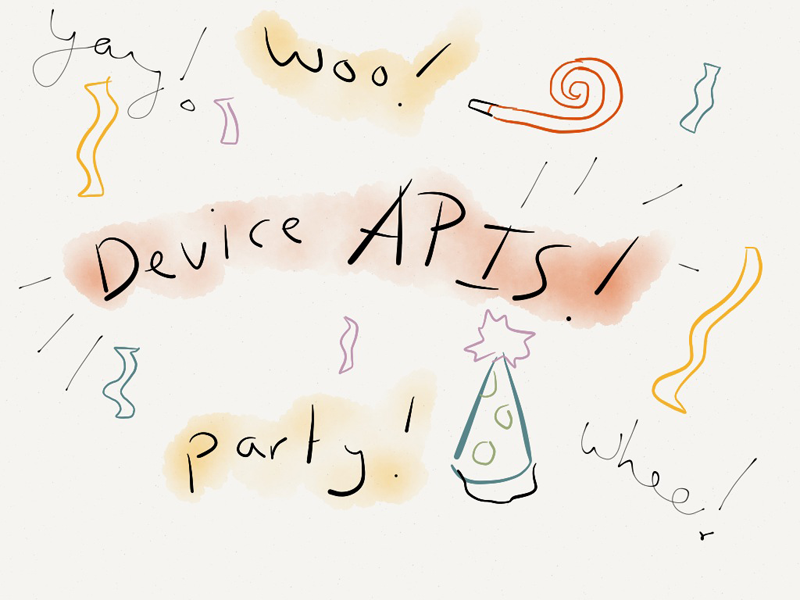 yay!
woo!
Device APIS!
party!
whee!